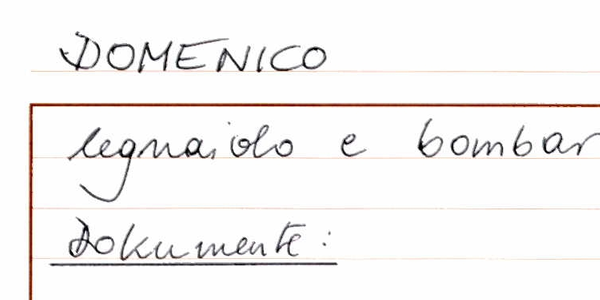 DOMENICO
legnaiolo e bombar
Dokumente: